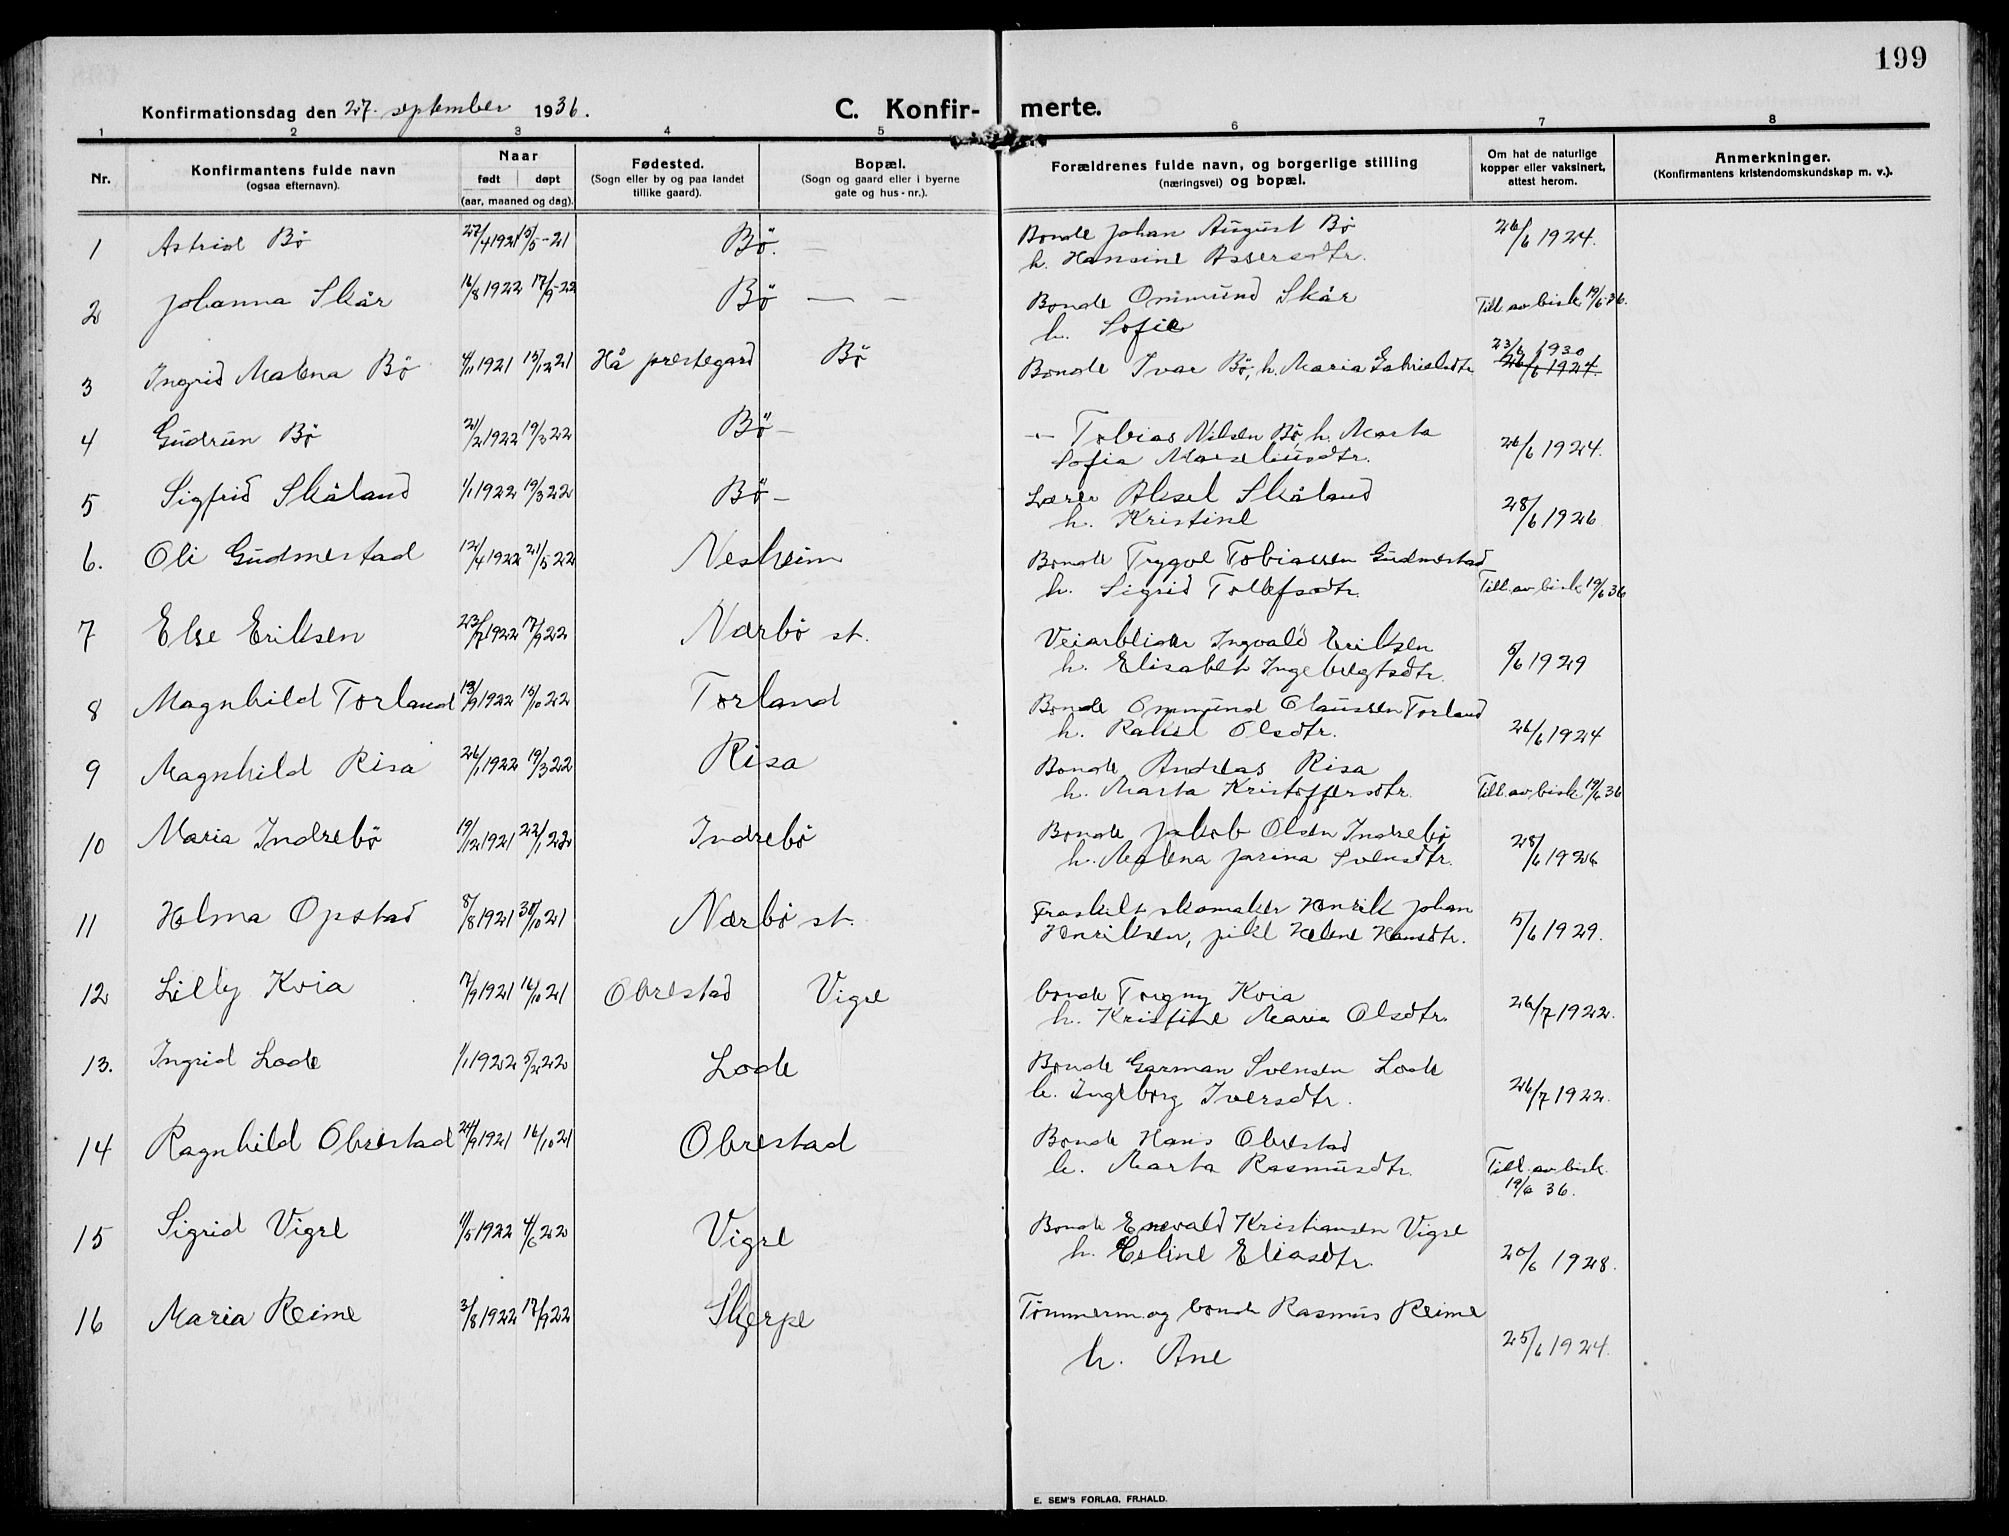 199
Konfirmationsdag den 27. september 1936. C. Konfir- merte.
1 2 3 4 5 6 7 8
Nr. Konfirmantens fulde navn (ogsaa efternavn). Naar født døpt (aar, maaned og dag). Fødested. (Sogn eller by og paa landet tillike gaard). Bopæl. (Sogn og gaard eller i byerne gate og hus-nr.). Forældrenes fulde navn, og borgerlige stilling (næringsvei) og bopæl. Om hat de naturlige kopper eller vaksinert, attest herom. Anmerkninger. (Konfirmantens kristendomskundskap m. v.).
1 Astrid Bö 27/4 1921 15/5-21 Bö. — Bonde Johan August Bö 26/6 1924.
h. Hansine Assersdtr.
2 Johanna Skår 16/8 1922 17/9-22 Bö — — Bonde Ommund Skår Till av bisk 19/6 36.
h. Sofie
3 Ingrid Malena Bö 4/11 1921 15/12 21 Hå prestegard Bö Bonde Ivar Bö, h. Maria Gabrielsdtr 23/6 1930
26/6 1924.
4 Gudrun Bö 21/2 1922 19/3 22 Bö — -"- Tobias Nilsen Bö, h. Marta
Sofia Marseliusdtr. 26/6 1924.
5 Sigfrid Skåland 1/1 1922 19/3 22 Bö — Lærer Aksel Skåland
h. Kristine 28/6 1926
6. Oli Gudmestad 12/4 1922 21/5 22 Nesheim Bonde Trygve Tobiassen Gudmestad
h. Sigrid Tollefsdtr. Till. av bisk 19/6 36
7 Else Eriksen 23/7 1922 17/9 22 Nærbö st. Veiarbeider Ingvald Eriksen
h. Elisabet Ingebregtsdtr. 5/6 1929
8 Magnhild Torland 13/9 1922 15/10 22 Torland Bonde Ommund Claussen Torland
h. Rakel Olsdtr. 26/6 1924
9 Magnhild Risa 26/1 1922 19/3 22 Risa Bonde Andreas Risa
h. Marta Kristoffersdtr. Till. av bisk 19/6 36
10 Maria Indrebö 19/12 1921 22/1 22 Indrebö Bonde Jakob Olsen Indrebö
h. Malena Jarina Svensdtr. 28/6 1926
11 Helma Opstad 8/8 1921 30/10 21 Nærbö st. Fraskilt skomaker Henrik Johan
Henriksen, pike Helene Hansdtr. 5/6 1929.
12 Lilly Kvia 7/9 1921 16/10 21 Obrestad Vigre bonde Torgny Kvia
h. Kristine Maria Olsdtr. 26/7 1922.
13. Ingrid Lode 1/1 1922 5/2 22 Lode Bonde Garman Svensen Lode
h. Ingeborg Iversdtr. 26/7 1922.
14 Ragnhild Obrestad 24/9 1921 16/10 21 Obrestad Bonde Hans Obrestad
h. Marta Rasmusdtr. Till. av bisk
19/6 36.
15 Sigrid Vigre 11/5 1922 4/6 22 Vigre Bonde Enevald Kristiansen Vigre
h. Eline Eliasdtr. 20/6 1928.
16 Maria Reime 3/8 1922 17/9 22 Skjerpe Tömmerm. og bonde Rasmus Reime
h. Ane 25/6 1924.
E. SEM'S FORLAG, FR.HALD.